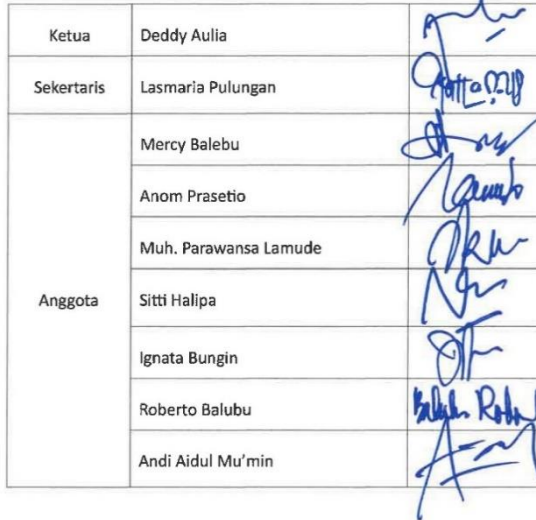 Ketua Deddy Aulia
Sekertaris Lasmaria Pulungan
Mercy Balebu
Anom Prasetio
Muh. Parawansa Lamude
Anggota Sitti Halipa
Ignata Bungin
Roberto Balubu
Andi Aidul Mu'min